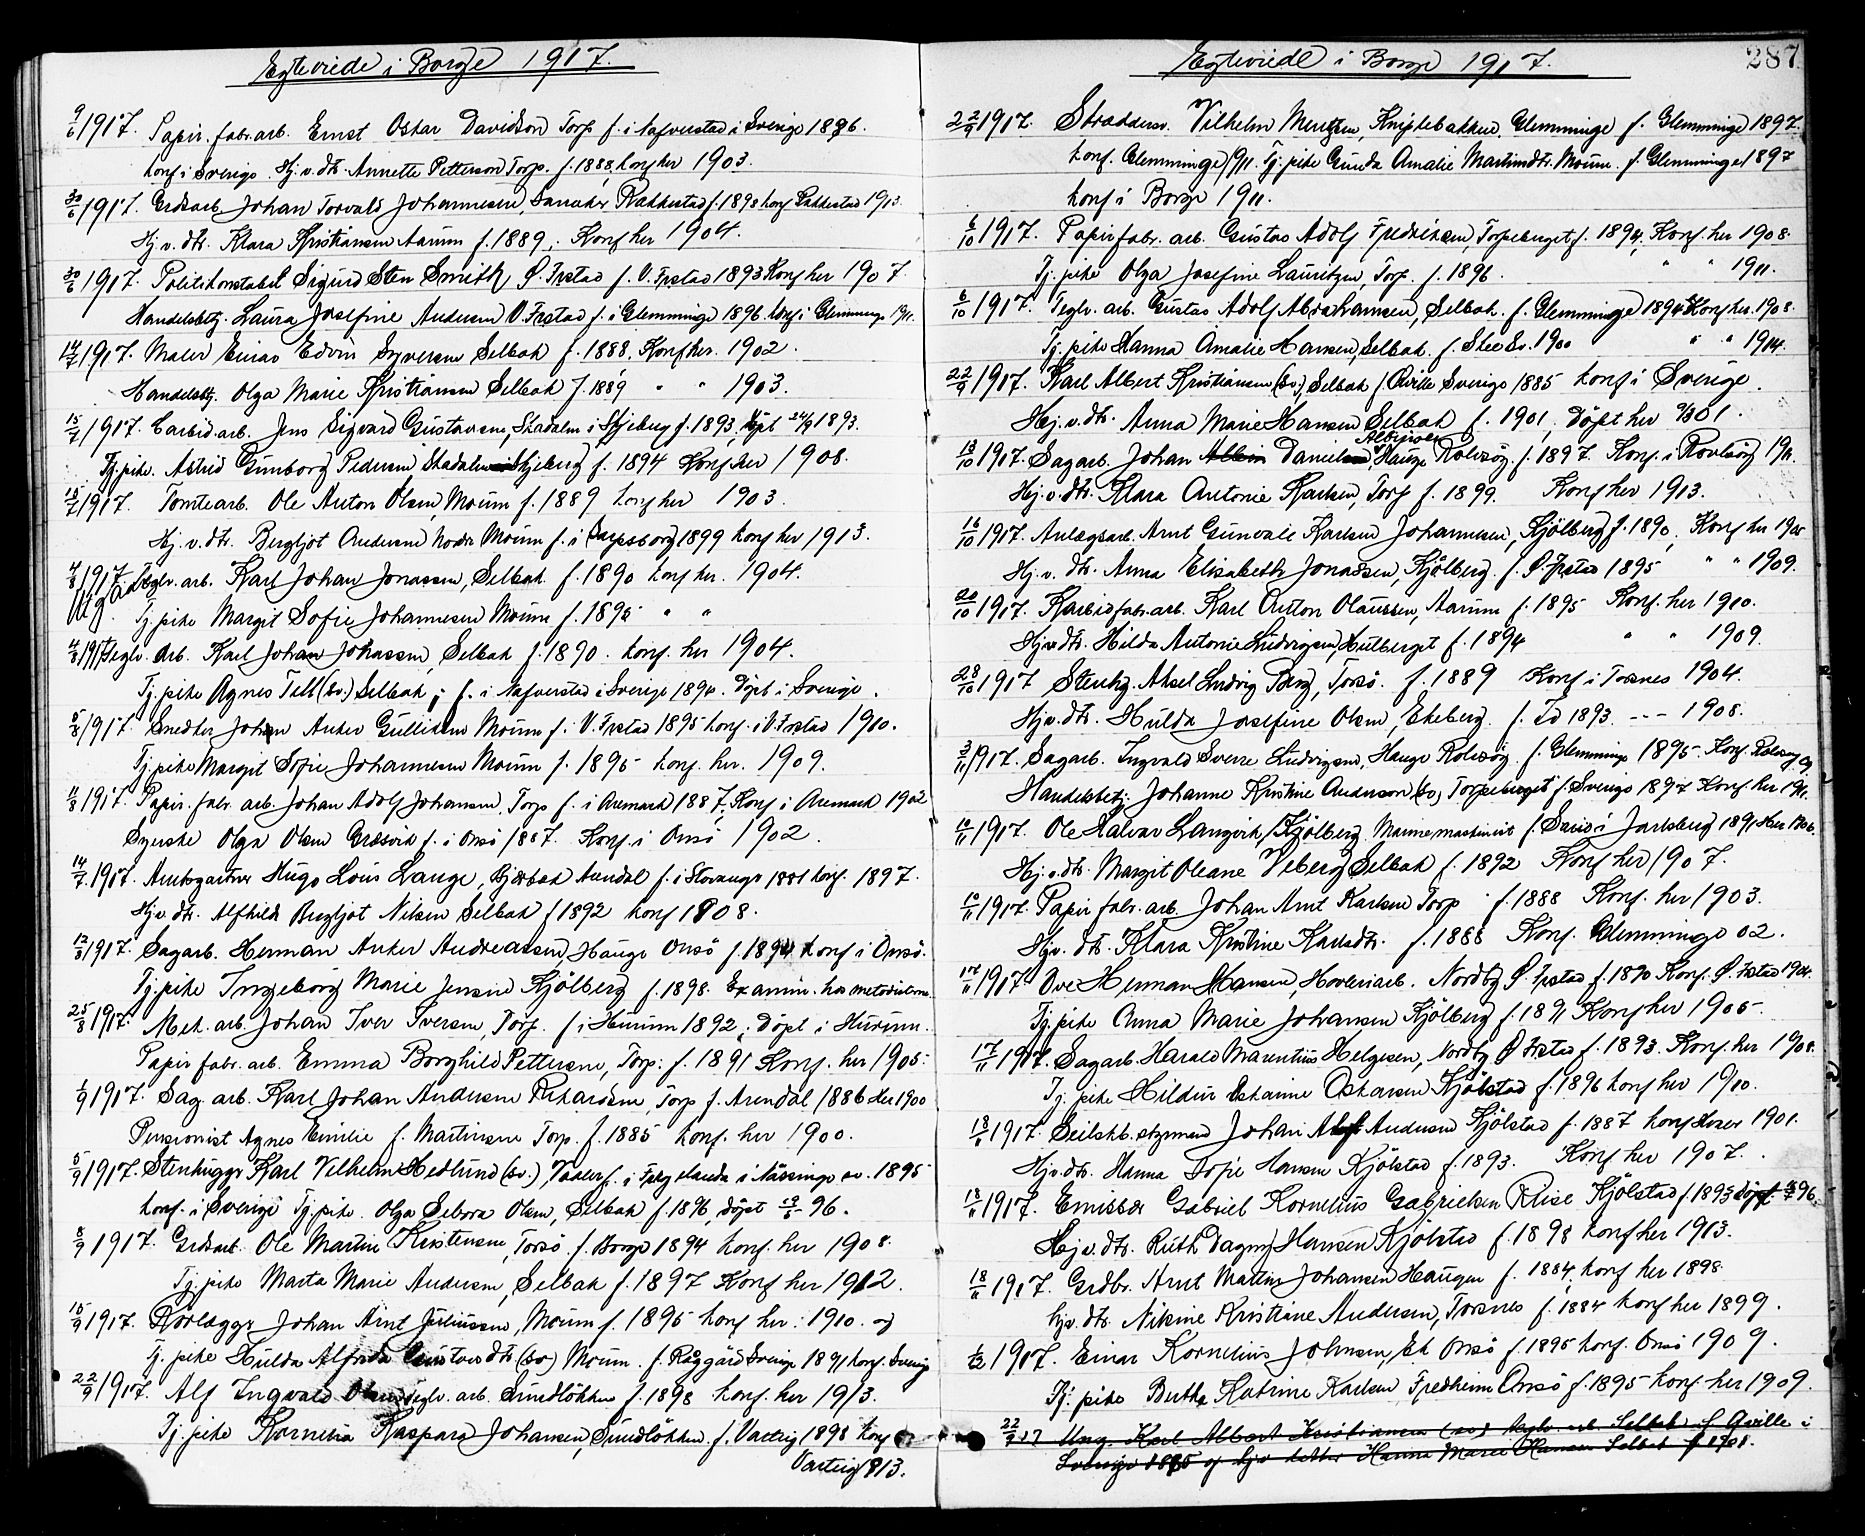 Egteviede i Borge 1917.
9/6 1917. Papir. fabr. arb. Ernst Oskar Davidson Torp f. i Nafverstad i Sverige 1886.
konf. i Sverige. Hj. v. dtr. Annette Petterson Torp. f. 1888, konf her 1903.
30/6 1917. Grdsarb. Johan Torvald Johannesen, Rakkestad f. 1893 konf Rakkestad 1913.
Hj. v. dtr. Klara Kristiansen Aarum f. 1889, Konf her 1904.
30/6 1917. Politikonstabel Sigurd Sten Smith, Ø. Frstad f. V. Frstad 1893 Konf her 1907.
Handelsbetj. Laura Josefine Andersen V. Frstad f. i Glemminge 1896. konf i Glemminge 1911.
14/7 1917. Maler Einar Edvin Syversen Selbak f. 1888, Konf her. 1902.
Handelsbetj. Olga Marie Kristiansen Selbak f. 1889 " " 1903.
15/7 1917. Carbid arb. Jens Sigvard Gustavsen, Skadalen i Skjeberg f. 1893, døpt 24/9 1893.
Tj. pike. Astrid Gunborg Pedersen Skadalen i Skjeberg f. 1894 Konf her 1908.
15/7 1917. Tomtearb. Ole Anton Olsen, Moum f. 1889 konf her 1903.
Hj. v. dtr. Bergljot Andersen Nordre Moum f. i Sarpsborg 1899 konf her 1913.
4/8 1917 Teglv. arb. Karl Johan Jonassen, Selbak f. 1890 konf her. 1904.
Utgaar. Tj. pike Margit Sofie Johannesen Moum f. 1895 " "
4/8 1917 Teglv. Arb. Karl Johan Johassen, Selbak f. 1890. konf. her 1904.
Tj. pike Agnes Tell (sv.) Selbak, f. i Nafverstad i Sverige 1894. Døpt i Sverige.
5/8 1917. Snedker Johan Anker Gulliksen Moum f. i V. Frstad 1895 konf. i V. Frstad 1910.
Tj. pike Margit Sofie Johannesen Moum f. 1895 konf. her. 1909.
11/8 1917. Papir. fabr. arb. Johan Adolf Johansen, Torp f. i Aremark 1887, Konf i Aremark 1902
Syerske Olga Olsen Græsvik f. i Onsö 1887. Konf. i Onsö 1902.
14/7 1917. Amtsgartner Hugo Louis Lange, Bjørbæk Arendal f. i Stavanger 1881 konf. 1897.
Hj. v. dtr. Alfhild Bergljot Nilsen Selbak f 1892 konf 1908.
12/8 1917. Sagarb. Herman Anker Andreassen, Hauge Onsö f. 1894 konf i Onsö.
Tj. pike Ingeborg Marie Jensen Kjölberg f. 1898. Examin. hos metodisterne
25/8 1917. Mek. arb. Johan Iver Iversen, Torp. f i Hurum 1892, døpt i Hurum.
Papir fabr. arb. Emma Borghild Pettersen, Torp. f. 1891 Konf. her 1905.
1/9 1917. Sag. arb. Karl Johan Andersen Rikardsen, Torp f. Arendal 1886 Her 1900
Pensionist Agnes Emilie f. Martinsen Torp. f. 1885 konf. her 1900.
5/9 1917. Stenhugger Karl Vilhelm Hedlund (sv.), f. i i Nässinge sv. 1895
konf. i Sverige Tj. pike. Olga Olsen, Selbak f. 1896, döpt 96.
8/9 1917. Grdsarb. Ole Martin Kristensen, Torsö f. Borge 1894 konf. her 1908.
Tj. pike Marta Marie Andersen, Selbak f. 1897 Konf her 1912.
15/9 1917. Rörlægger Johan Arnt Juliussen, Moum f. 1895 konf her. 1910. og
Tj. pike Hulda Alfrida Gustavsdtr. (sv) Moum. f. Råggärd Sverige 1891 konf. Sverig
22/9 1917. Alf Ingvald Olsen teglv. arb. Sundlökken f. 1898 konf. her 1913.
Tj. pike Kornelia Kaspara Johansen, Sundlökken f. Varteig 1898 konf
Varteig 1913.
Egteviede i Borge 1917.
287
22/9 1917. Skræddersv. Vilhelm Mentzen, Kniplebakken, Glemminge f. Glemminge 1897.
konf. Glemminge 1911. Tj. pike Gunda Amalie Martinsdtr. Moum. f. Glemminge 1897
konf i Borge 1911.
6/10 1917. Papirfabr. arb. Gustav Adolf Fredriksen, Torpeberget f. 1894, Konf. her 1908.
Tj. pike Olga Josefine Lauritzen, Torp. f. 1896. " " 1911.
6/10 1917. Teglv. arb. Gustav Adolf Abrahamsen, Selbak. f. Glemminge 1894 Konf her. 1908.
Tj. pike Hanna Amalie Hansen, Selbak. f. Skee Sv. 1900 " " 1914.
22/9 1917. Karl Albert Kristiansen (sv.) Selbak f. Qville Sverige 1885 konf i Sverige.
Hj. v. dtr. Anna Marie Hansen Selbak f. 1901, døpt her 01.
Albinsen
13/10 1917. Sagarb. Johan Albin Danielsen, Hauge Rolvsög. f. 1897. Konf. i Rovlsöy 1911.
Hj. v. dtr. Klara Antonie Karlsen, Torp f. 1899. Konf her 1913.
16/10 1917. Anlagsarb. Arnt Gunvald Karlsen Johannesen, Kjölberg f. 1890, Konf her 1905
Hj. v. dtr. Anna Elisabeth Jonassen, Kjölberg. f. Ø. Frstad 1895 " " 1909.
20/10 1917. Karbidfabr. arb. Karl Anton Olaussen, Aarum f. 1895 Konf. her 1910.
Hjv dtr. Hilda Antonie Ludvigsen, Hulberget f. 1894 " " 1909.
28/10 1917 Stenhg. Aksel Ludvig Berg, Torsö. f. 1889 Konf i Torsnes 1904.
Hjv. dtr. Hulda Josefine Olsen, Ekeberg. f. Id 1893. --- 1908.
3/11 1917. Sagarb. Ingvald Sverre Ludvigsen, Hauge Rolvsög. f. Glemminge 1895. Konf. Rolvsøy
Handelsbetj. Johanne Kristine Anderson (sv) Torpeberget f. Sverige 1897 Konf her 1911.
10/11 1917. Ole Halvar Langvik, Kjölberg. Marinemaskinist f. i Jarlsberg 1891 Her 1906.
Hj. v. dtr. Margit Oleane Veberg Selbak f. 1892 Konf her 1907.
10/11 1917. Papir fabr. arb. Johan Arnt Karlsen Torp f. 1888 Konf. her 1903.
Hjv. dtr. Klara Kristine Karlsdtr. f. 1888 Konf. Glemminge 02.
17/11 1917. Ove Herman Hansen, Hovleriarb. Nordby Ø. Frstad f. 1890 Konf. Ø. Frstad 1904.
Tj. pike Anna Marie Johansen Kjölberg f. 1891 Konf her 1905
17/11 1917. Sagarb. Harald Marentius Helgesen, Nordby Ø Frstad f. 1893. Konf. her 1908.
Tj. pike Hildur Oskarine Oskarsen Kjölstad f. 1896 konf her 1910.
18/ 1917. Seilskb. styrmand Johan Alf Andersen Kjölstad f. 1887 konf 1901.
Hjv. dtr. Hanna Sofie Hansen Kjölstad f. 1893. Konf her 1907.
18/11 1917. Emissær Gabriel Kornelius Gabrielsen Kjölstad f. 1895 døpt 96.
Hj v. dtr. Ruth Dagny Hansen Kjölstad f. 1898 konf her 1913.
18/11 1917. Grdbr. Arnt Martin Johansen Haugen f. 1884, konf her 1898
Hjv. dtr. Niksine Kristiane Andersen, Torsnes f. 1884 konf her 1899.
1/12 1917. Einar Kornelius Johnsen, Ek Onsö f. 1895 konf. Onsö 1909.
Tj. pike Berthe Katrine Karlsen Fredheim Onsö f. 1895 konf her 1909.
22/9 17 Ung. Karl Albert Kristiansen (sv) teglv. arb Selbak f. Qville i
Sverige 1885 og hjv datter Hanna Marie Hansen Selbak f 1901.